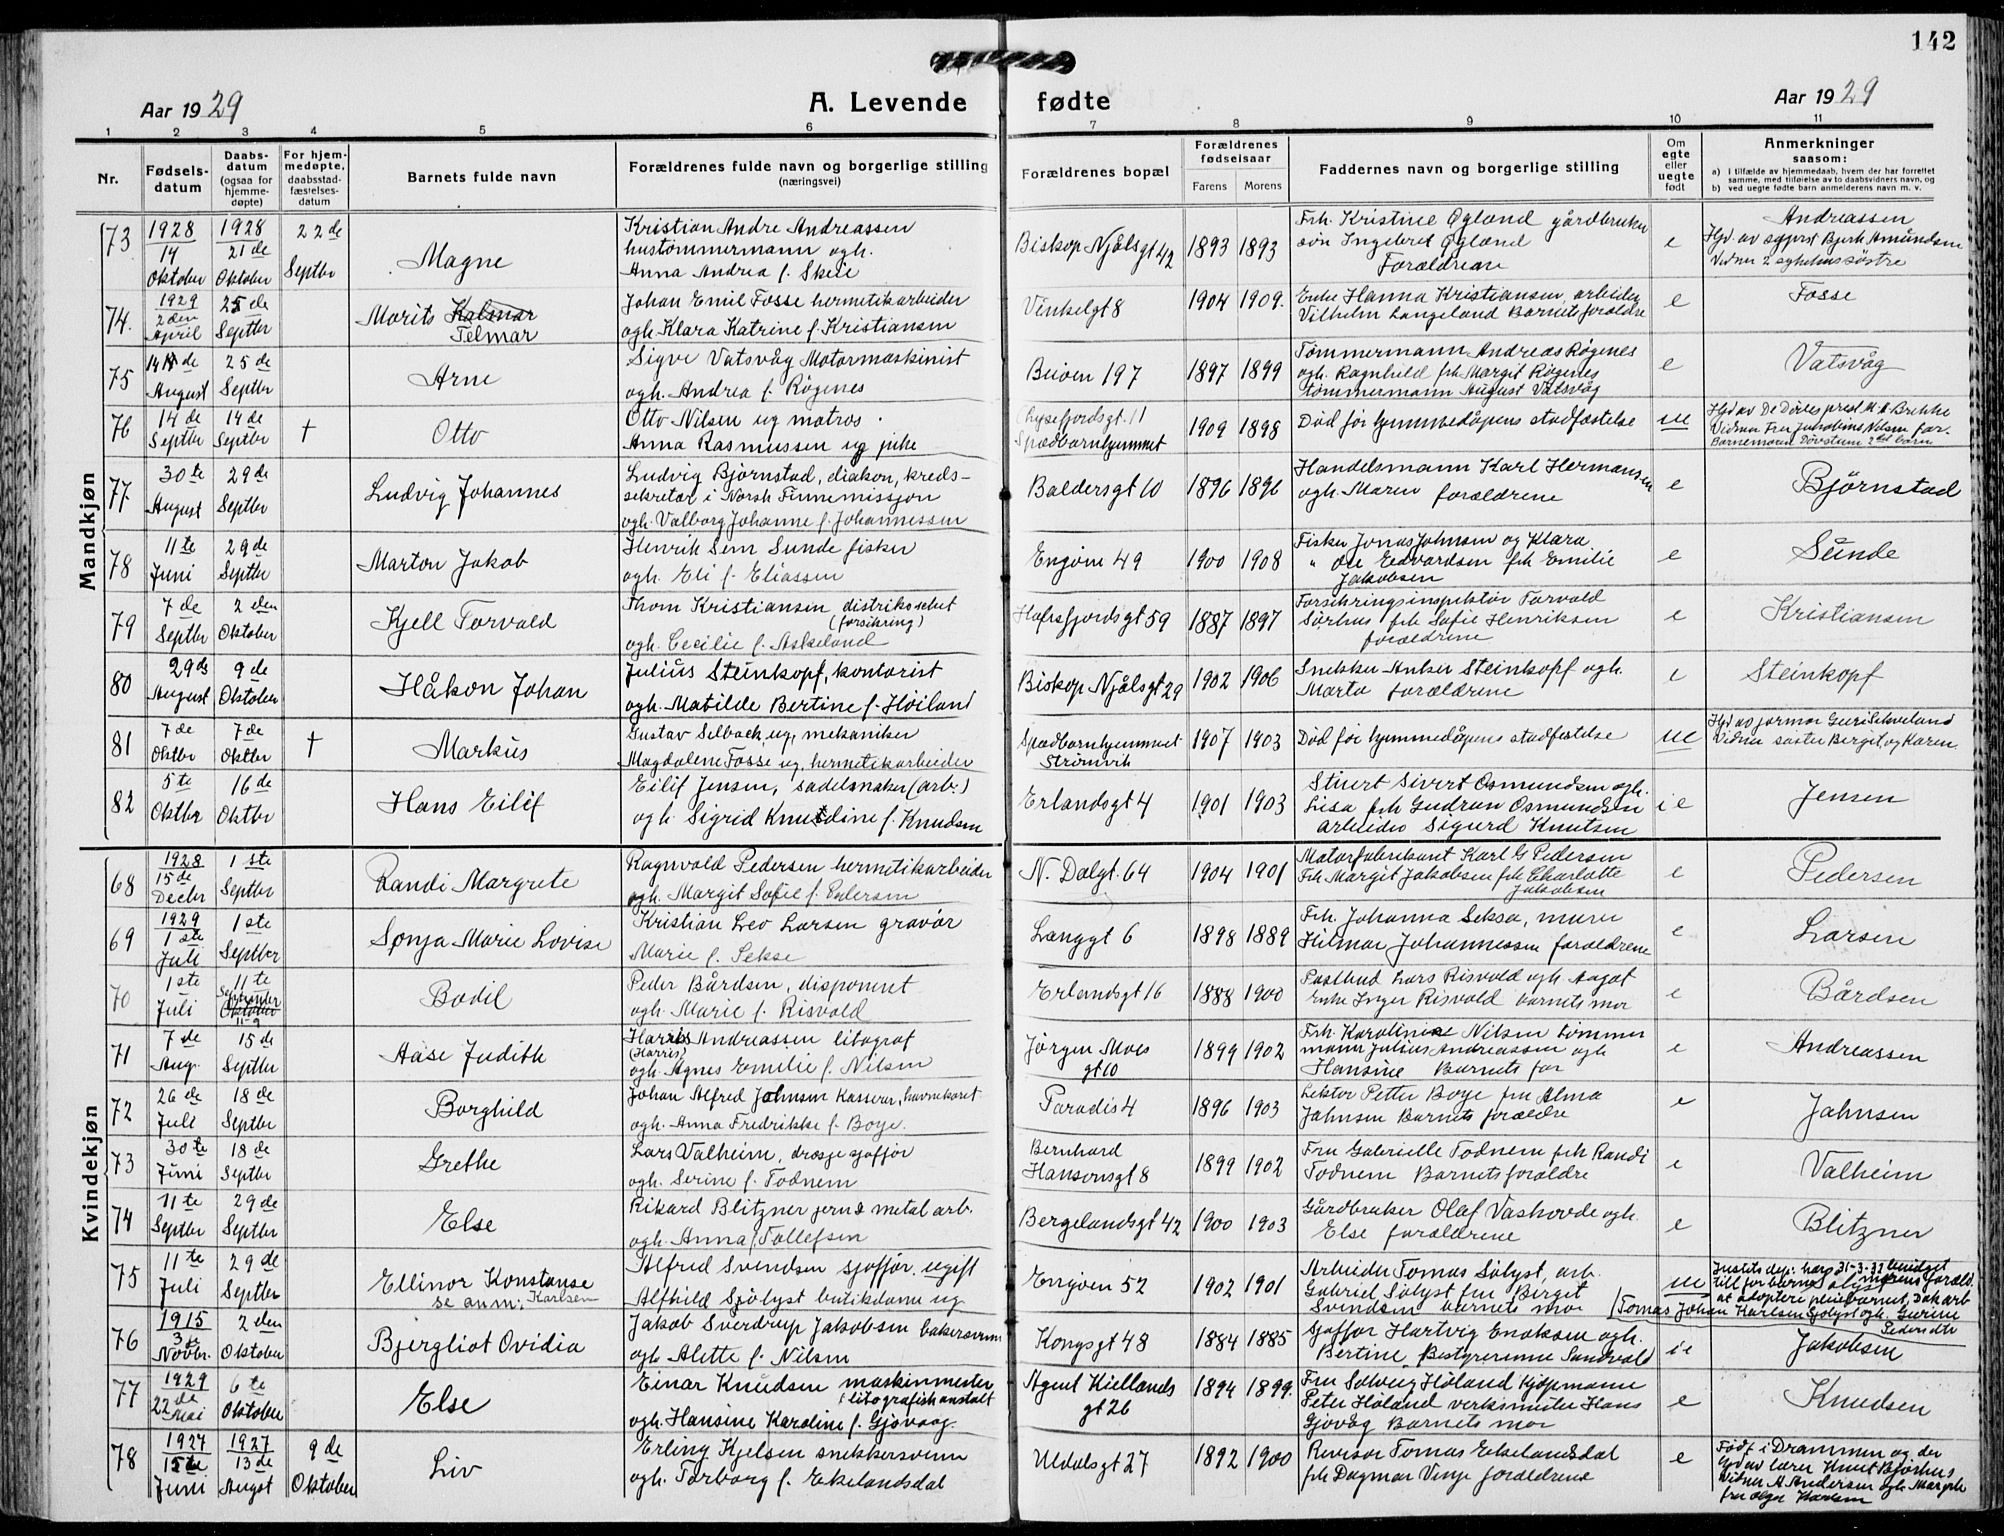 142
Aar 1929
A. Levende fødte
Aar 1929
1 2 3 4 5 6 7 8 9 10 11
Nr.
Fødsels-datum
Daabs-datum (ogsaa for hjemme-døpte)
For hjem-medøpte, daabsstad-fæstelses-datum
Barnets fulde navn
Forældrenes fulde navn og borgerlige stilling (næringsvei)
Forældrenes bopæl
Forældrenes fødselsaar
Farens Morens
Faddernes navn og borgerlige stilling
Om egte eller uegte født
Anmerkninger saasom:
a) I tilfælde av hjemmedaab, hvem der har forrettet samme, med tilføielse av to daabsvidners navn, og
b) ved uegte fødte barn anmelderens navn m. v.
Mandkjøn
73 1928 14 Oktober 1928 21 de Oktober 22 de Septbr Magne
Kristian Andre Andreassen
hustømmermann ogh.
Anna Andrea f. Skeie
Biskop Njålsgt 42 1893 1893
Frk. Kristine Øgland gårdbruker
søn Ingebret Øgland
Forældrene
e Andreassen
74. 1929 2 den April 25 de Septbr Morits Kalmar
Telmar
Johan Emil Fosse hermetikarbeider
ogh. Klara Katrine f. Kristiansen
Vinkelgt 8 1904 1909.
Enke Hanna Kristiansen, arbeider
Vilhelm Langeland Barnets forældre
e Fosse
75 14 de August 25 de Septbr Arne
Sigve Vatsvåg Motormaskinist
ogh. Andrea f. Røgenes
Buøen 197 1897 1899
Tømmermann Andreas Røgenes
ogh. Ragnhild frk Margit Røgenes
tømmermann August Vatsvåg
e Vatsvåg
76 14 de Septbr 14 de Septbr † Otto
Otto Nilsen ug matros.
Anna Rasmussen ug pike
Lysefjordsgt. 11
Spædbarnhjemmet 1909 1898
Død før hjemmedåpens stadfestelse
ue
77 30 te August 29 de Septbr Ludvig Johannes
Ludvig Bjørnstad, diakon, kreds-
sekretær i Norsk Finnemissjon
ogh. Valborg Johanne f. Johannessen
Baldersgt 10 1896 1896
Handelsmann Karl Hermansen
ogh. Maren forældrene
e Bjørnstad
78 11 te Juni 29 de Septbr Marton Jakob
Henrik Sem Sunde fisker
ogh. Eli f. Eliassen
Engøen 49 1900 1908
Fisker Jonas Johnsen og Klara
" Ole Edvardsen frk Emilie
Jakobsen
e Sunde
79 7 de Septbr 2 den Oktober Kjell Torvald
Thom Kristiansen distrikschef
(forsikring)
ogh. Cecilie f. Askeland
Hafrsfjordsgt 59 1887 1897
Forsikringsinspektør Torvald
Sørhus frk Sofie Henriksen
forældrene
e Kristiansen
80 29 de August 9 de Oktober Håkon Johan
Julius Steinkopf, kontorist
ogh. Matilde Bertine f. Høiland
Biskop Njålsgt 29 1902 1906
Snekker Anker Steinkopf ogh.
Marta forældrene
e Steinkopf
81 7 de Oktbr 7 de Oktbr † Markus
Gustav Selbach, ug, mekaniker
Magdalene Fosse ug, hermetikarbeider
Spædbarnhjemmet
Strømvik 1907 1903
Død før hjemmedåpens stadfestelse
ue
82 5 te Oktbr 16 de Oktbr Hans Eilif
Eilif Jensen, sadelmaker (arb.)
ogh. Sigrid Knutdine f. Knudsen
Erlandsgt 4 1901 1903
Stuert Sivert Osmundsen ogh.
Lisa frk Gudrun Osmundsen
arbeider Sigurd Knutsen
e Jensen
Kvindekjøn
68 1928 15 de Decbr 1 ste Septbr Randi Margrete
Ragnvald Pedersen hermetikarbeider
ogh. Margit Sofie f. Pedersen
N. Dalgt. 64 1904 1901
Motorfabrikant Karl G Pedersen
Frk. Margit Jakobsen frk Charlotte
Jakobsen
e Pedersen
69 1929 1 ste Juli 1 ste Septber Sonja Marie Lovise
Kristian Leo Larsen gravør
Marie f. Sekse
Langgt 6 1898 1889
Frk. Johanna Seksa, murer
Hilmar Johannessen forældrene
e Larsen
70 1 ste Juli 11 te September Oktober 11-9 Bodil
Peder Bårdsen, disponent
ogh. Marie f. Risvold
Erlandsgt 16 1888 1900
Postbud Lars Risvold ogh. Aagot
Enke Inger Risvold barnets mor
e Bårdsen
71 7 de Aug. 15 de Septbr Aase Judith
Harris Andreassen litograf
(Harris)
ogh. Agnes Emilie f. Nilsen
Jørgen Moes
gt 10 1899 1902
Frk. Karoline Nilsen tømmer
mann Julius Andreassen ogh
Hansine Barnets far
e Andreassen
72 26 de Juli 18 de Septbr Borghild
Johan Alfred Jahnsen Kasserer, havnekont.
ogh. Anna Fredrikke f. Boye.
Paradis 4 1896 1903
Lektor Petter Boye fru Alma
Jahnsen Barnets forældre
e Jahnsen
73 30 te Juni 18 de Septbr Grethe
Lars Valheim, drosjesjåffør
ogh. Serine f. Todnem
Bernhard
Hansensgt 8 1899 1902
Fru Gabrielle Todnem frk Randi
Todnem Barnets forældre
e Valheim
74 11 te Septbr 29 de Septbr Else
Rikard Blitzner jern & metal arb.
ogh. Anna f. Tollefsen
Bergelandsgt 42 1900 1903
Gårdbruker Olaf Vashovde ogh.
Else forældrene
e Blitzner
75 11 te Juli 29 de Septbr Ellinor Konstanse
se anm. Karlsen
Alfred Svendsen sjåffør ugift
Alfhild Sjølyst butikdame ug
Engøen 52 1902 1901
Arbeider Tomas Sølyst, arb.
Gabriel Sølyst fru Birgit
Svendsen barnets mor
ue
76 1915 3 Novbr. 2 den Oktober Bjergliot Ovidia
Jakob Sverdrup Jakobsen bakersvenn
ogh. Alette f. Nilsen
Kongsgt 48 1884 1885
Sjåffør Hartvig Enoksen ogh.
Bertine, Bestyrerinne Sandvold
e Jakobsen
77 1929 22 de Mai 6 te Oktober Else
Einar Knudsen maskinmester
i litografisk anstalt
ogh. Hansine Karoline f. Gjøvaag.
Agent Kiellands
gt 26 1894 1899.
Fru Solveig Høland kjøpmann
Peter Høland verksmester Hans
Gjøvåg Barnets mor
e Knudsen
78 1927 15 de Juni 1927 13 de August 9 de Oktober Liv
Erling Kjelsen snikkersvenn
ogh. Torborg f. Eikelandsdal
Udalsgt 27 1892 1900
Revisor Tomas Eikelandsdal
frk Dagmar Vinje forældrene
e
Født i Drammen og der